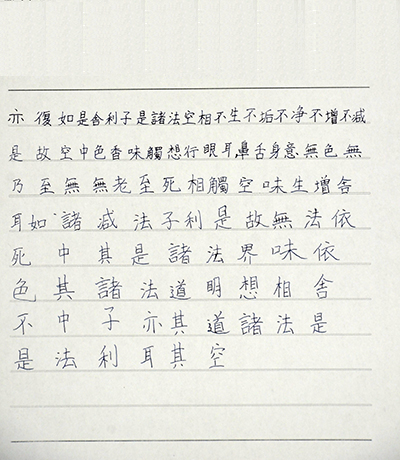 亦復如是舍利子是諸法空相不生不垢不净不增不减
是故空中色香味觸想行眼耳鼻舌身意無色無
乃至無無老至死相觸空味生增舍
耳如諸减法子利是故無法依
死中其是諸法界味依
色其諸法道明想相舍
不中子亦其道諸法是
是法利耳其空